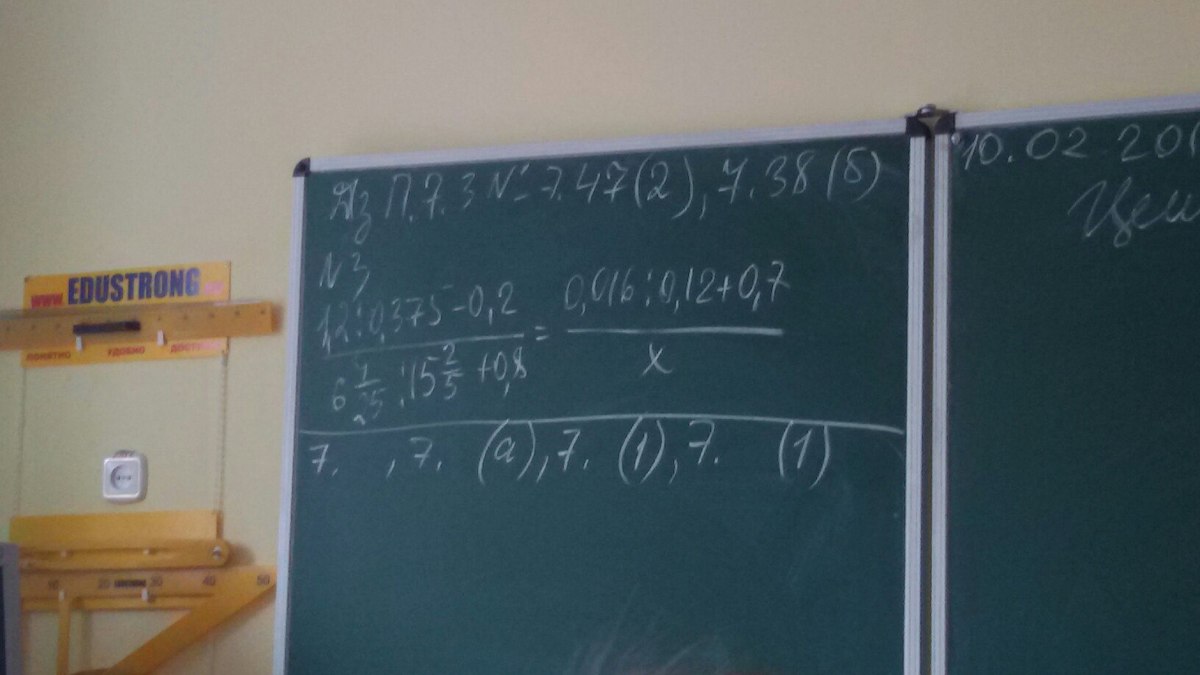 Дз П.7.3 № 7.47(2), 7.38(б)
N3
1,2:0,375-0,2 / 6 7/25 :15 2/5 +0,8 = 0,016:0,12+0,7 / x
7. , 7. (а), 7. (1), 7. (1)
10.02 201
www EDUSTRONG
ПОНЯТНО УДОБНО ДОСТУ
10 20 EDUSTRONG 30 40 50